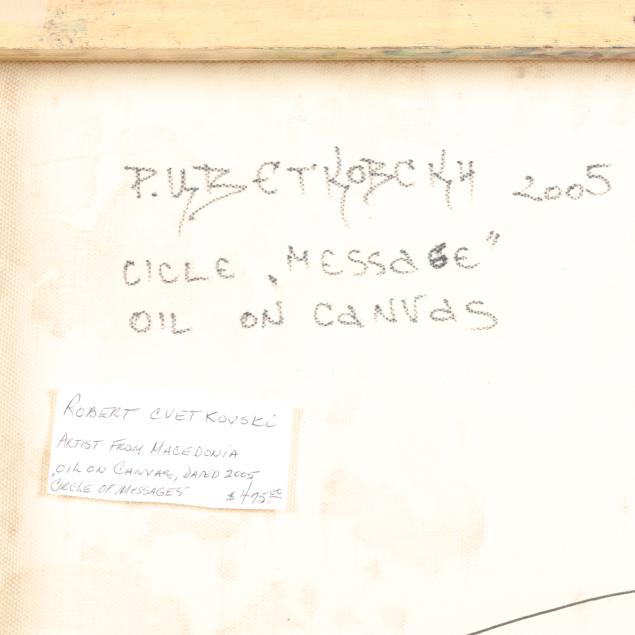 Р. ЦВЕТКОВСКИ 2005
CICLE „MESSAGE”
OIL ON CANVAS
ROBERT CVETKOVSKI
ARTIST FROM MACEDONIA
OIL ON CANVAS, DATED 2005
CIRCLE OF MESSAGES $475.00